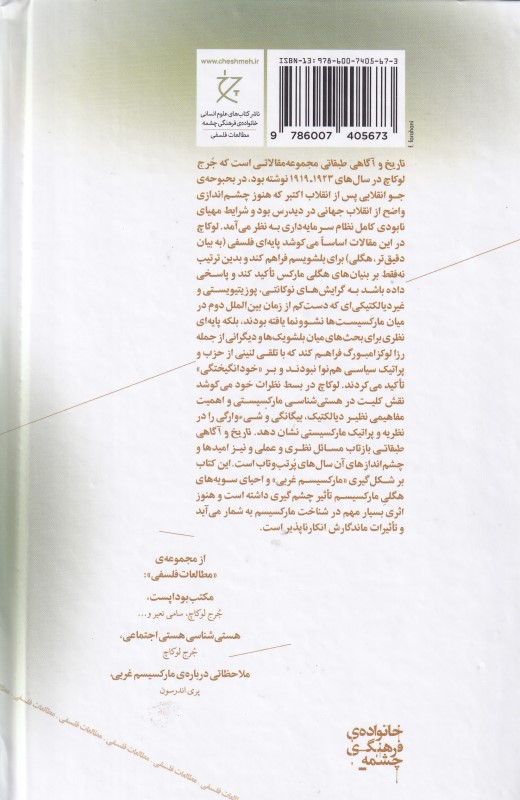 www.cheshmeh.ir
ناشر کتاب‌های علوم انسانی
خانواده‌ی فرهنگی چشمه
مطالعات فلسفی
ISBN-13: 978-600-7405-67-3
9 786007 405673
f. farahani
تاریخ و آگاهی طبقاتی مجموعه‌مقالاتی است که جُرج
لوکاچ در سال‌های ۱۹۲۳ـ۱۹۱۹ نوشته بود، در بحبوحه‌ی
جو انقلابی پس از انقلاب اکتبر که هنوز چشم‌اندازی
واضح از انقلاب جهانی در دیدرس بود و شرایط مهیای
نابودی کامل نظام سرمایه‌داری به نظر می‌آمد. لوکاچ
در این مقالات اساساً می‌کوشد پایه‌ای فلسفی (به بیان
دقیق‌تر، هگلی) برای بلشویسم فراهم کند و بدین ترتیب
نه‌فقط بر بنیان‌های هگلی مارکس تأکید کند و پاسخی
داده باشد به گرایش‌های نوکانتی، پوزیتیویستی و
غیردیالکتیکی‌ای که دست‌کم از زمان بین‌الملل دوم در
میان مارکسیست‌ها نشوونما یافته بودند، بلکه پایه‌ای
نظری برای بحث‌های میان بلشویک‌ها و دیگرانی از جمله
رزا لوکزامبورگ فراهم کند که با تلقی لنینی از حزب و
پراتیک سیاسی هم‌نوا نبودند و بر «خودانگیختگی»
تأکید می‌کردند. لوکاچ در بسط نظرات خود می‌کوشد
نقش کلیت در هستی‌شناسی مارکسیستی و اهمیت
مفاهیمی نظیر دیالکتیک، بیگانگی و شیءوارگی را در
نظریه و پراتیک مارکسیستی نشان دهد. تاریخ و آگاهی
طبقاتی بازتاب مسائل نظری و عملی و نیز امیدها و
چشم‌اندازهای آن سال‌های پُرتب‌وتاب است. این کتاب
بر شکل‌گیری «مارکسیسم غربی» و احیای سویه‌های
هگلیِ مارکسیسم تأثیر چشم‌گیری داشته است و هنوز
اثری بسیار مهم در شناخت مارکسیسم به شمار می‌آید
و تأثیرات ماندگارش انکارناپذیر است.
از مجموعه‌ی
«مطالعات فلسفی»:
مکتب بوداپست،
جُرج لوکاچ، سامی نعیر و...
هستی‌شناسی هستی اجتماعی،
جُرج لوکاچ
ملاحظاتی درباره‌ی مارکسیسم غربی،
پری اندرسون
مطالعات فلسفی . مطالعات فلسفی . مطالعات فلسفی . مطالعات فلسفی . مطالعات فلسفی
خانواده‌ی
فرهنگی
چشمه